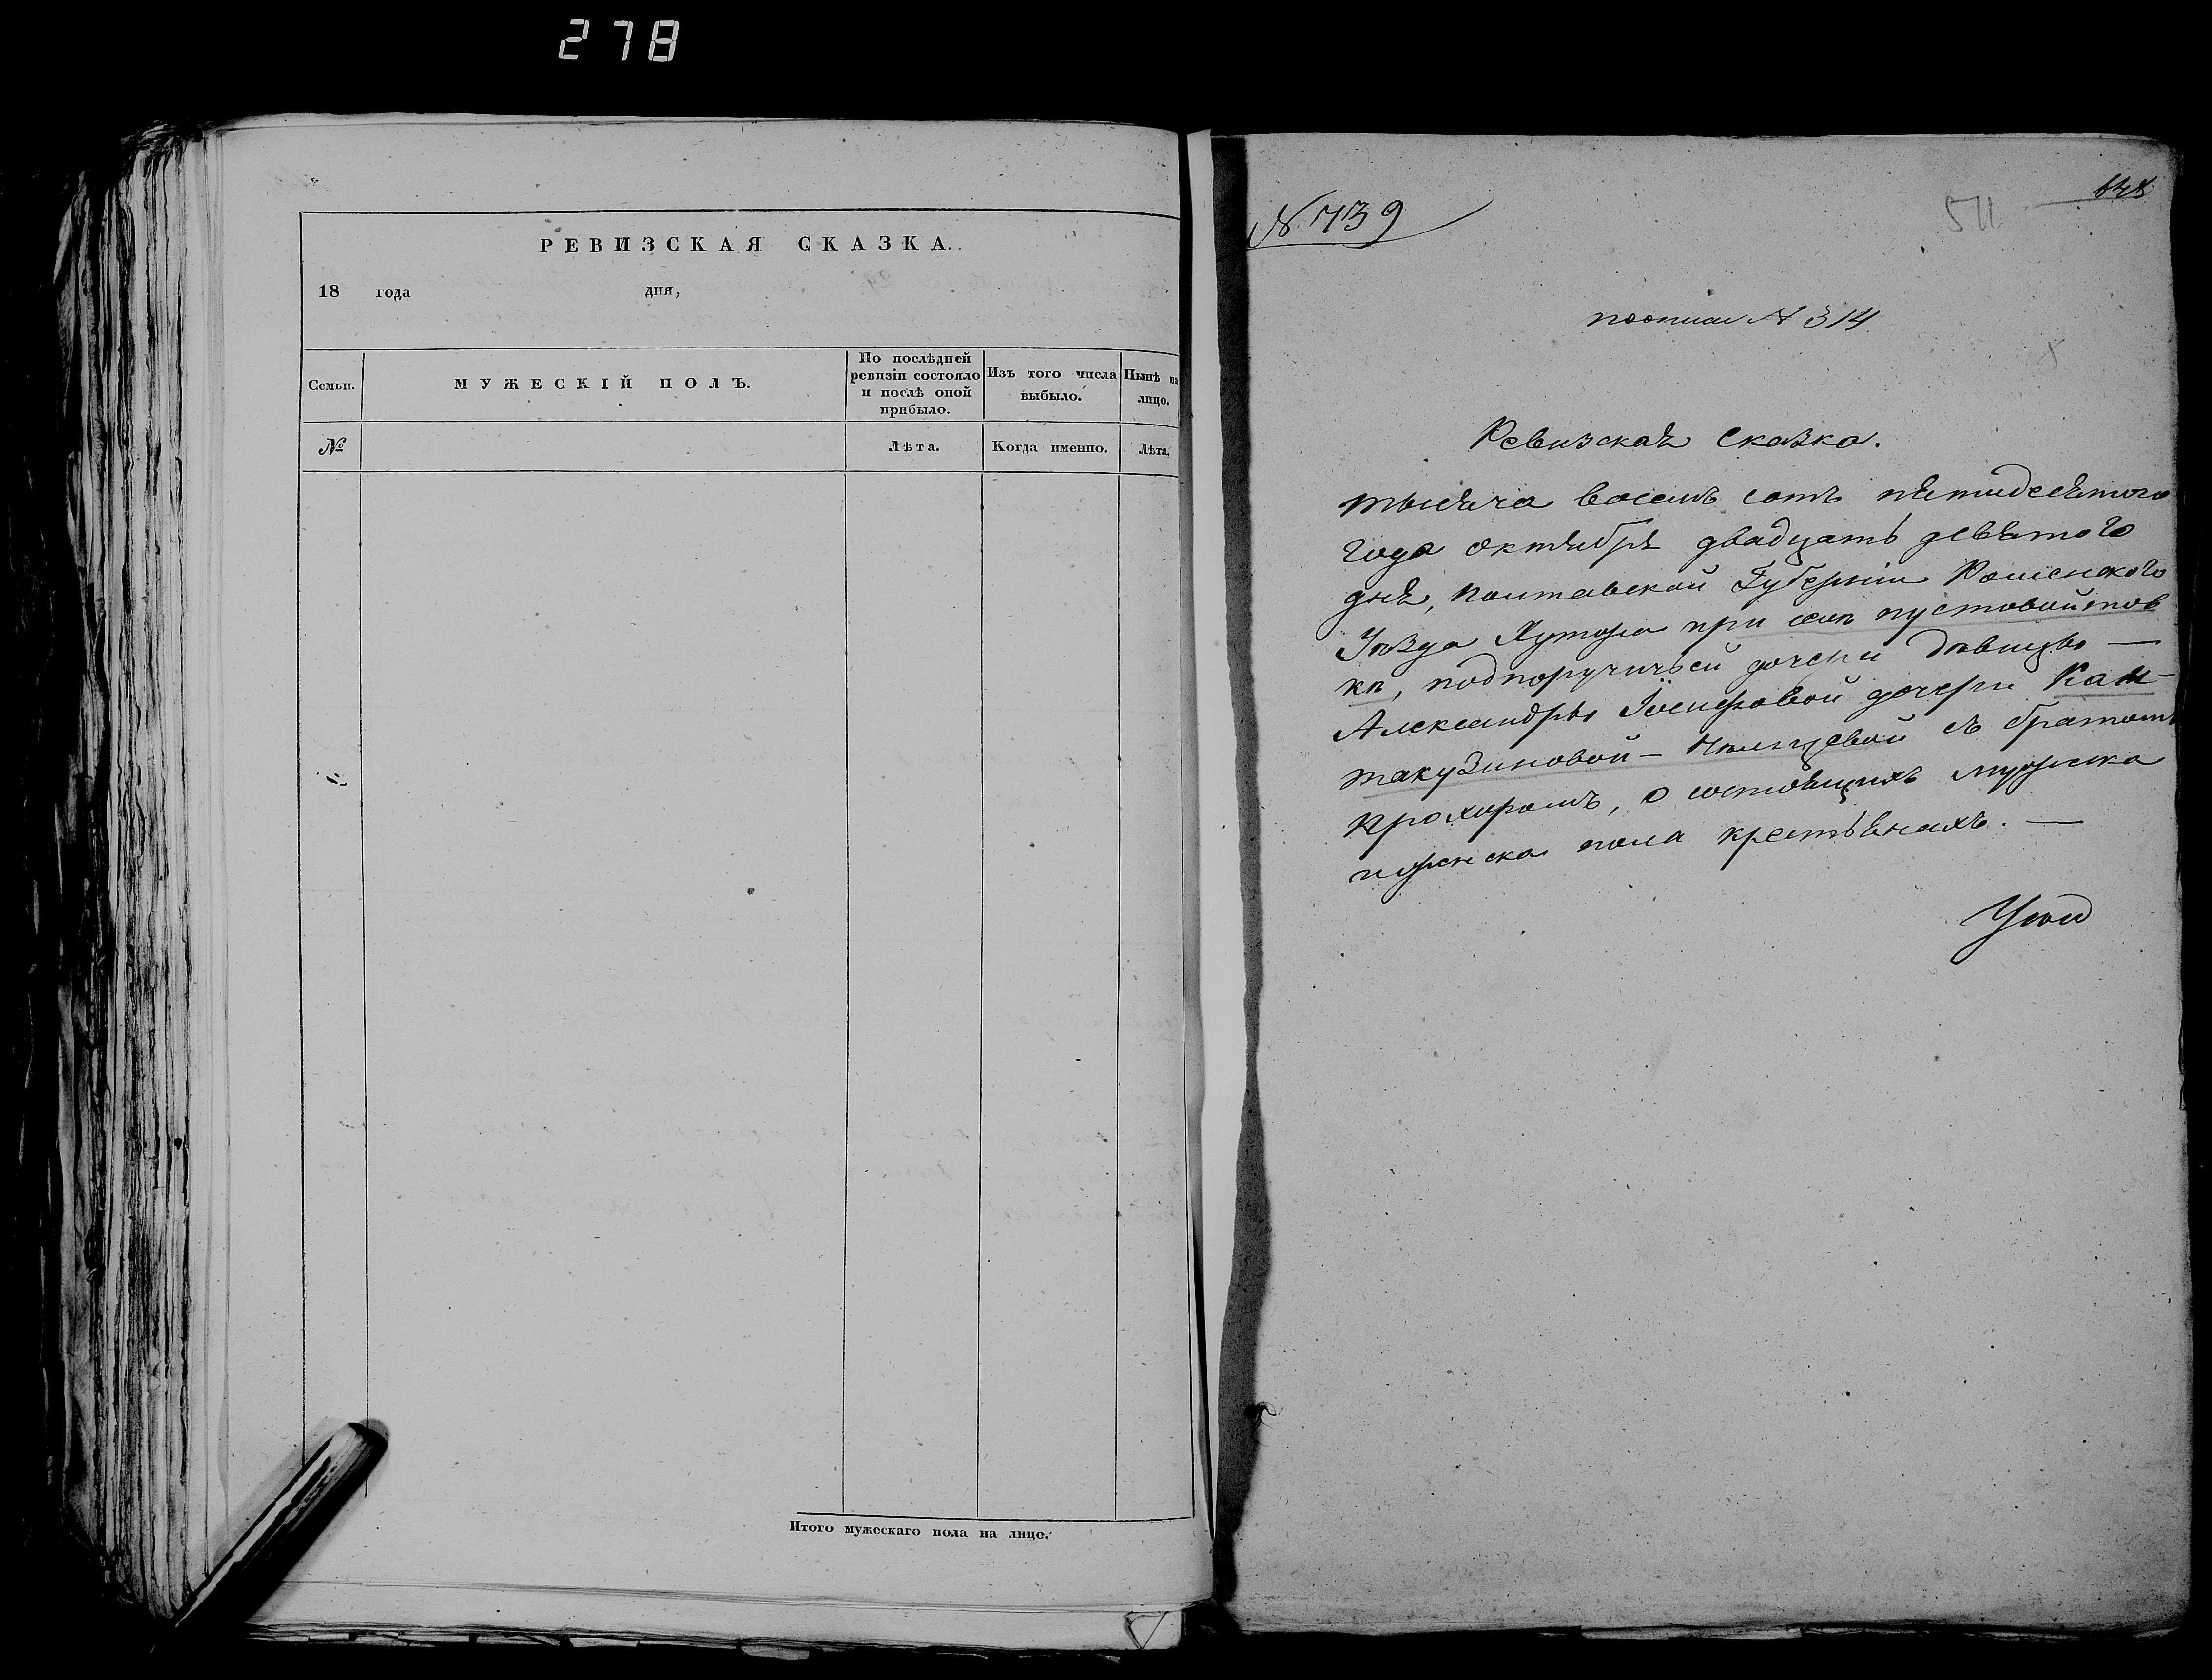 278
РЕВИЗСКАЯ СКАЗКА.
18 года дня,
Семьи.
МУЖЕСКІЙ ПОЛЪ.
По послѣдней ревизіи состояло и послѣ оной прибыло.
Изъ того числа выбыло.
Нынѣ на лицо.
№
Лѣта.
Когда именно.
Лѣта.
Итого мужескаго пола на лицо.
N 739
511
по описи N 314
Ревизская сказка.
тысяча восемь сотъ пятидесятого
года октября двадцать девятого
дня, Полтавской Губерніи Роменского
Уѣзда Хутора при селѣ Пустовойтов
кѣ, подпоручичьей дочери дѣвицы —
Александры Іосифовой дочери Кан-
такузиновой - съ братомъ
Прохоромъ, о состоящихъ мужска
и женска пола крестьянахъ. —